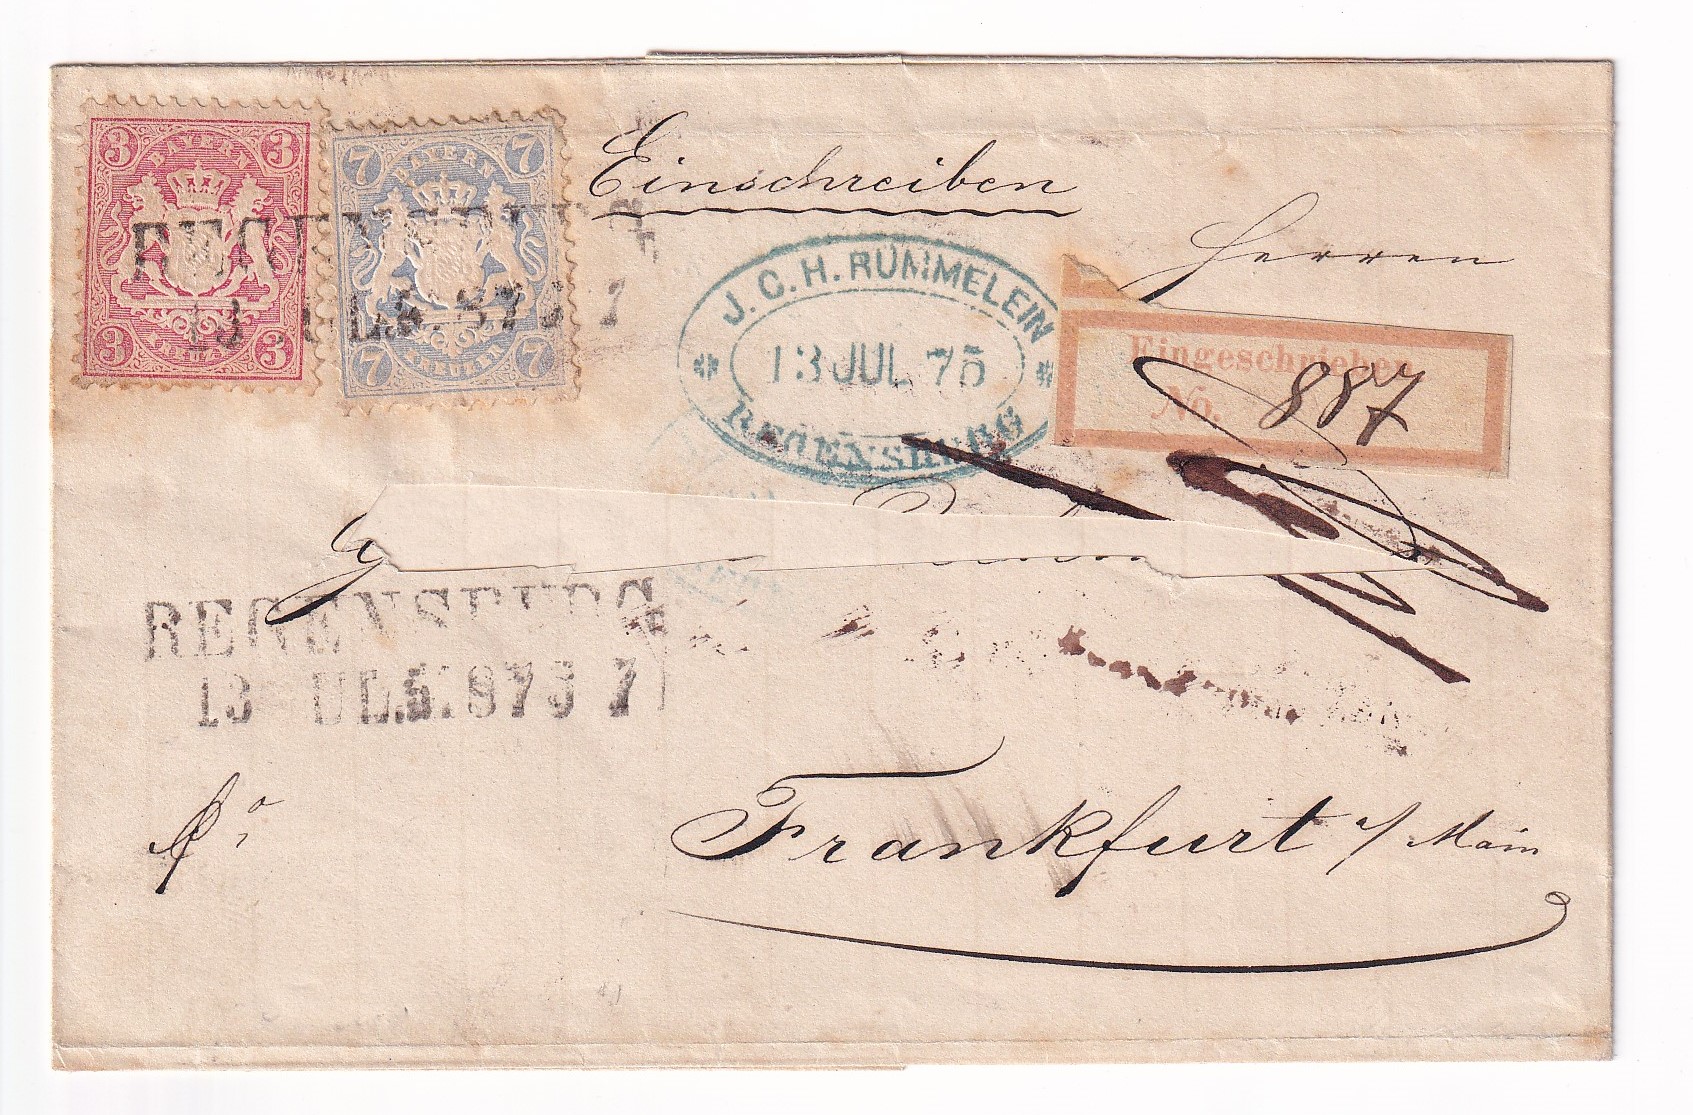 3 3
BAYERN
3 3
7 7
BAYERN
KREUZER
7 7
REGENSBURG
13 JUL. 5. 875 7
Einschreiben
Herren
J. C. H. RÜMMELEIN
13 JUL 75
REGENSBURG
Eingeschrieben
No. 887
REGENSBURG
13 JUL. 5. 875 7
Frankfurt a/ Main